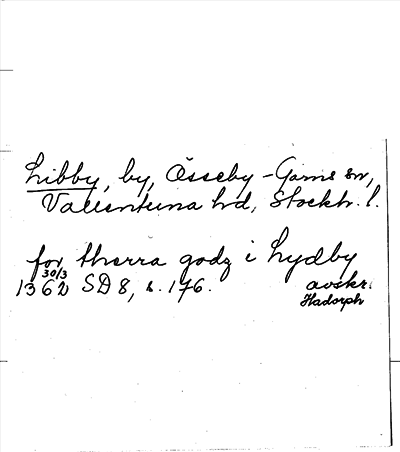 Libby, by, Össeby-Garns sn,
Vallentuna hd, Stockh. l.
for therra godz i Lydby
30/3
1362 SD 8, s. 176. avskr.
Hadorph